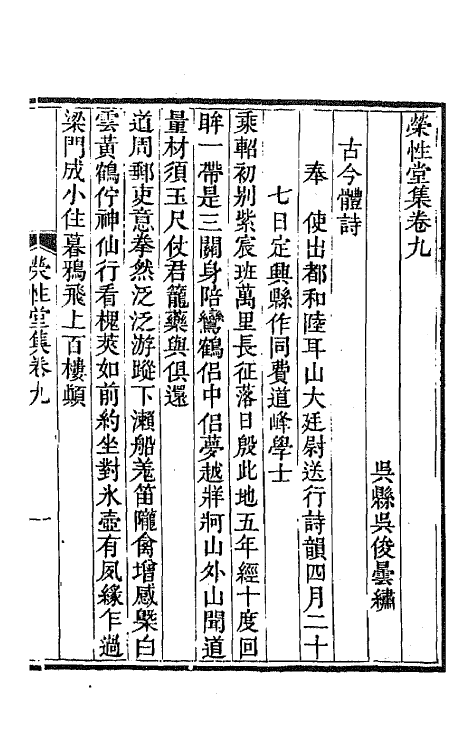 榮性堂集卷九
吳縣吳俊曇繡
古今體詩
奉　使出都和陸耳山大廷尉送行詩韻四月二十
七日定興縣作同費道峰學士
乘軺初别紫宸班萬里長征落日殷此地五年經十度回
眸一帶是三關身陪鸞鶴侣中侣夢越牂牁山外山聞道
量材須玉尺仗君籠藥與俱還
道周郵吏意拳然泛泛游蹤下瀨船羗笛隴禽增感槩白
雲黃鶴佇神仙行看槐莢如前約坐對氷壺有夙緣乍過
梁門成小住暮鴉飛上百樓顛
榮性堂集卷九
一